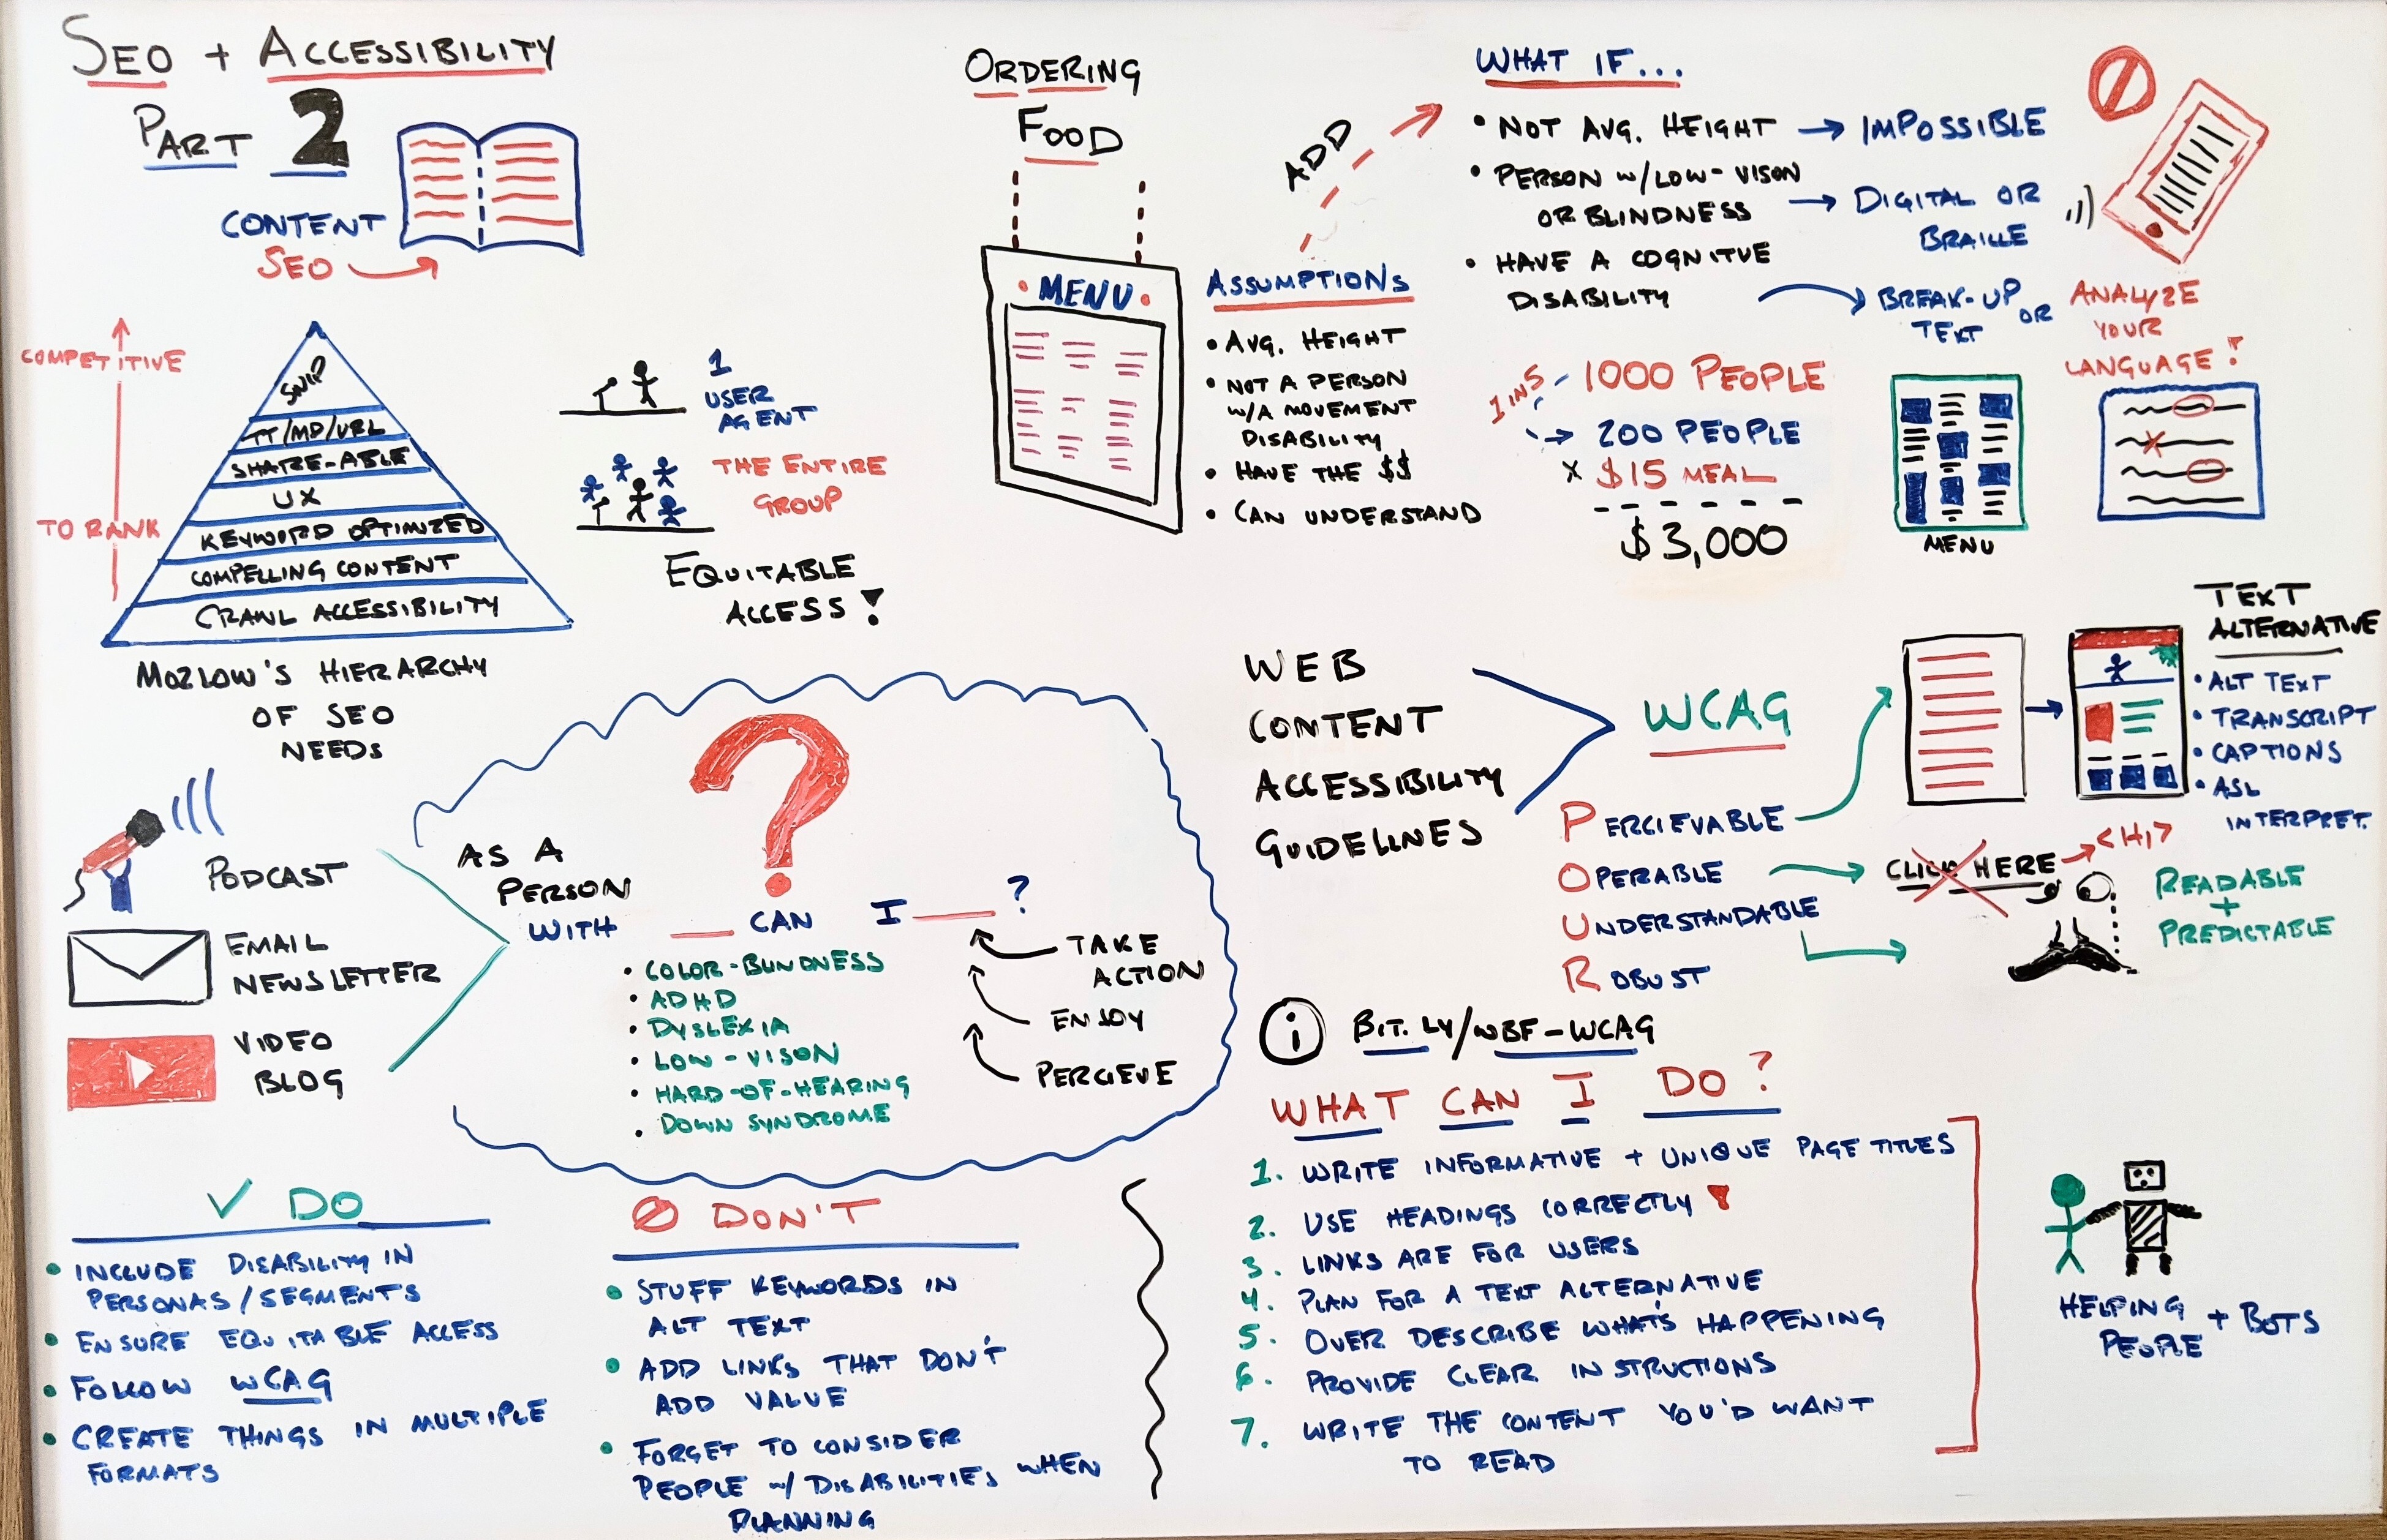 SEO + ACCESSIBILITY
PART 2
CONTENT
SEO
COMPETITIVE
TO RANK
SNIP
TT/MD/URL
SHARE-ABLE
UX
KEYWORD OPTIMIZED
COMPELLING CONTENT
CRAWL ACCESSIBILITY
MOZLOW'S HIERARCHY
OF SEO
NEEDS
1
USER
AGENT
THE ENTIRE
GROUP
EQUITABLE
ACCESS!
ORDERING
FOOD
MENU
ASSUMPTIONS
• AVG. HEIGHT
• NOT A PERSON
W/A MOVEMENT
DISABILITY
• HAVE THE $$
• CAN UNDERSTAND
ADD
WHAT IF...
• NOT AVG. HEIGHT → IMPOSSIBLE
• PERSON W/LOW-VISON
OR BLINDNESS → DIGITAL OR
BRAILLE
• HAVE A COGNITVE
DISABILITY
BREAK-UP OR
TEXT
ANALYZE
YOUR
LANGUAGE!
1 IN 5
1000 PEOPLE
200 PEOPLE
X $15 MEAL
$3,000
MENU
PODCAST
EMAIL
NEWSLETTER
VIDEO
BLOG
?
AS A
PERSON
WITH ___ CAN I ___ ?
• COLOR-BLINDNESS
• ADHD
• DYSLEXIA
• LOW-VISON
• HARD-OF-HEARING
• DOWN SYNDROME
TAKE
ACTION
ENJOY
PERCIEVE
WEB
CONTENT
ACCESSIBILITY
GUIDELINES
WCAG
PERCIEVABLE
OPERABLE
UNDERSTANDABLE
ROBUST
TEXT
ALTERNATIVE
• ALT TEXT
• TRANSCRIPT
• CAPTIONS
• ASL
INTERPRET.
CLICK HERE
<H1>
READABLE
+
PREDICTABLE
i BIT.LY/WBF-WCAG
✓ DO
• INCLUDE DISABILITY IN
PERSONAS/SEGMENTS
• ENSURE EQUITABLE ACCESS
• FOLLOW WCAG
• CREATE THINGS IN MULTIPLE
FORMATS
DON'T
• STUFF KEYWORDS IN
ALT TEXT
• ADD LINKS THAT DON'T
ADD VALUE
• FORGET TO CONSIDER
PEOPLE W/DISABILITIES WHEN
PLANNING
WHAT CAN I DO?
1. WRITE INFORMATIVE + UNIQUE PAGE TITLES
2. USE HEADINGS CORRECTLY!
3. LINKS ARE FOR USERS
4. PLAN FOR A TEXT ALTERNATIVE
5. OVER DESCRIBE WHAT'S HAPPENING
6. PROVIDE CLEAR INSTRUCTIONS
7. WRITE THE CONTENT YOU'D WANT
TO READ
HELPING
PEOPLE + BOTS